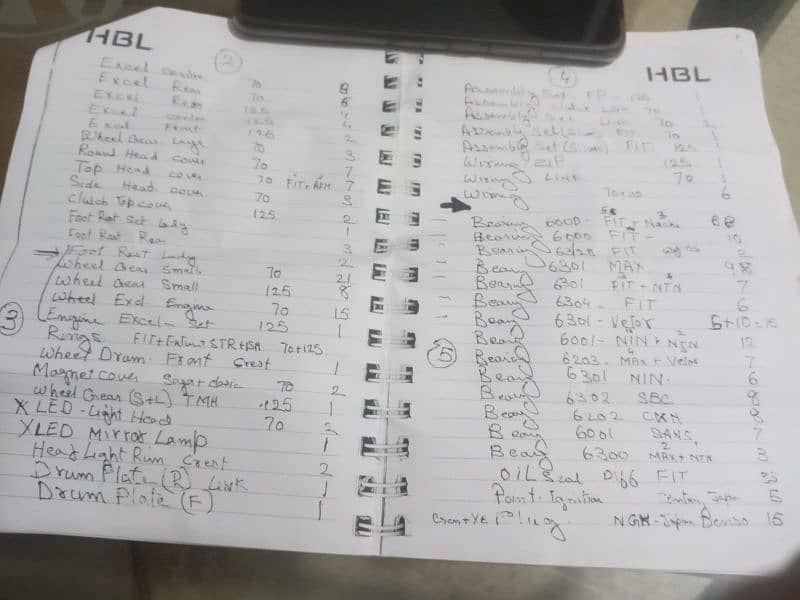 HBL
2
Excel Center 70 8
Excel Rear 70 6
Excel Rear 125 4
Excel center 125 4
Excel Front 125 2
Wheel Gear Large 70 3
Round Head cover 70 7
Top Head cover 70 FIT+AFM 7
Side Head cover 70 3
Clutch Top cover 125 2
Foot Rest Set Lady 1
Foot Rest Rear 3
Foot Rest Lady 2
Wheel Gear Small 70 21
Wheel Gear Small 125 8
Wheel Excl Engine 70 15
Engine Excel Set 125 1
3
Rings FIT+ STR+ 70+125
Wheel Drum Front Crest 1
Magnet cover 70 2
Wheel Gear (S+L) TMH 125 1
X LED Light Head 70 2
X LED Mirror Lamp 1
Head Light Rum Crest 2
Drum Plate (R) LINK 1
Drum Plate (F) 1
HBL
4
Assembly Set 125 1
Assembly 70 1
Assembly Set 70 2
Assembly Set 70 1
Assembly Set FIT 125 1
Wiring ZIP 125 1
Wiring LINK 70 1
Wiring 6
Bearing 6000 FIT +
Bearing 6000 FIT 10
Bearing FIT 2
Beang 6301 MAX 98
Bearing 6301 FIT + NTN 7
Beang 6304 FIT 6
Beang 6301 - Velor 5+10=15
5
Beang 6001 - NIN + NTN 12
Bearing 6203 - MAX + Velor 7
Beang 6301 NIN 6
Beang 6302 SBC 8
Beang 6202 8
Beang 6001 7
Beang 6300 MAX+NTN 3
OIL Seal Diff FIT
Point Ignition Japan 5
Plug NGK - Japan Denso 15